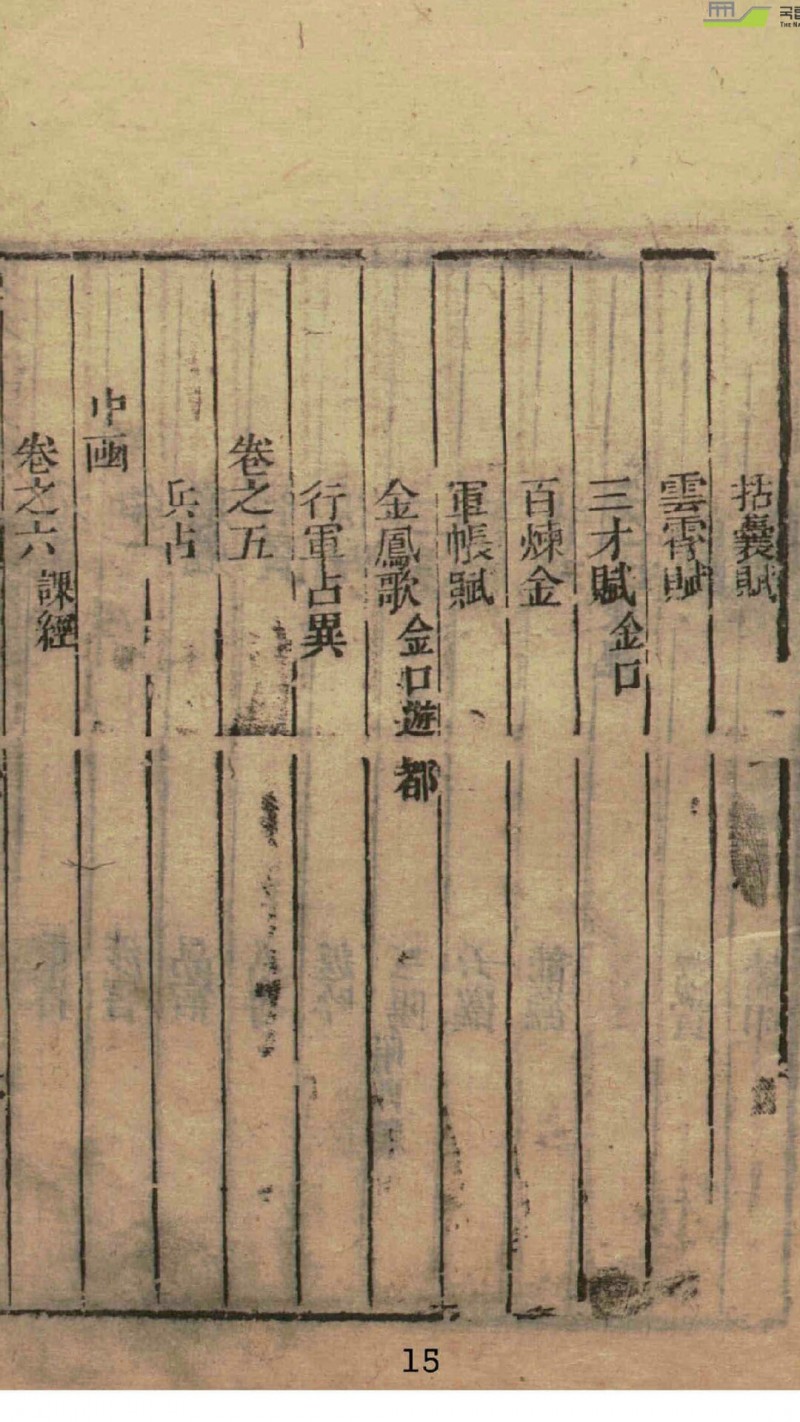 括囊賦
雲霄賦
三才賦金口
百煉金
軍帳賦
金鳳歌金口遊都
行軍占異
卷之五
兵占
中函
卷之六課經
15